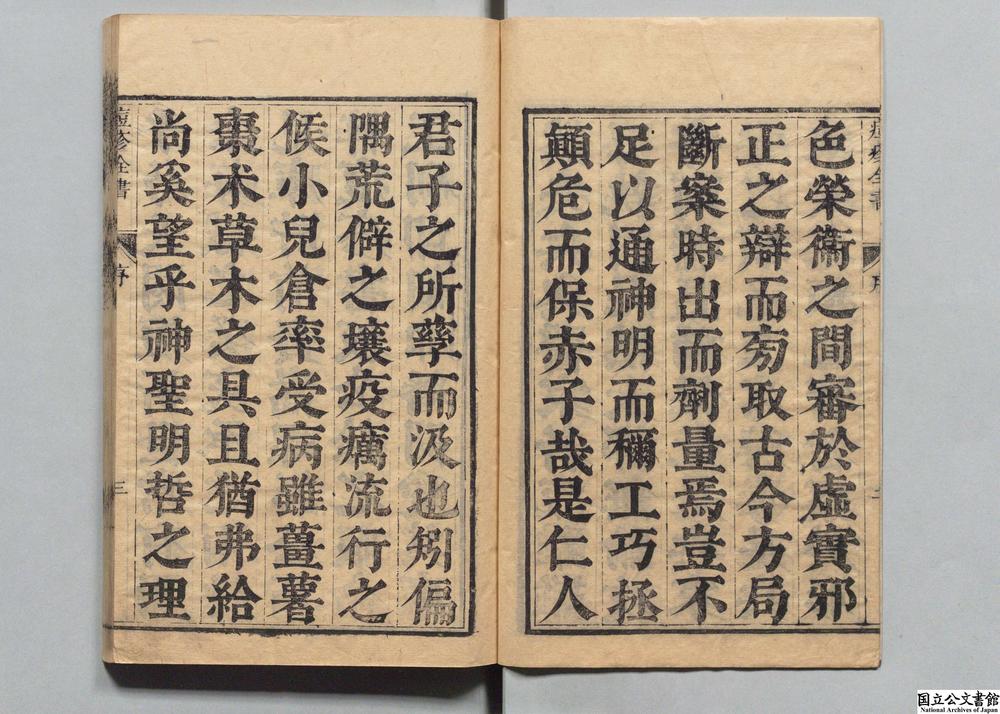 色榮衞之間審於虛實邪
正之辯而旁取古今方局
斷案時出而劑量焉豈不
足以通神明而稱工巧拯
顛危而保赤子哉是仁人
君子之所孳而汲也矧偏
隅荒僻之壤疫癘流行之
候小兒倉率受病雖薑薯
棗术草木之具且猶弗給
尚奚望乎神聖明哲之理
痘疹全書
序
三
国立公文書館
National Archives of Japan